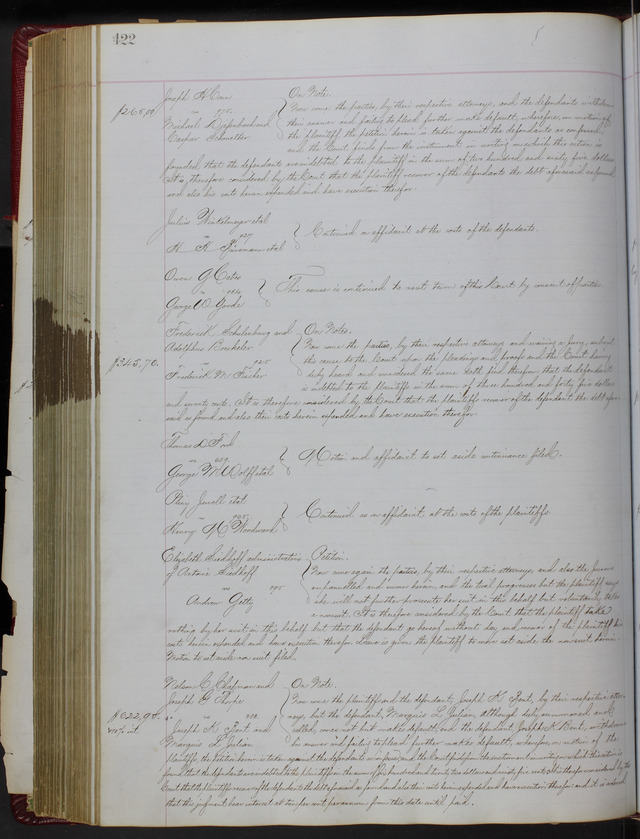 422
Joseph H.
On Note.
Now come the parties, by their respective attorneys, and the defendants withdraw
their answer and failing to plead further make default, wherefore, on motion of
the plaintiff the petition herein is taken against the defendants as confessed,
and the Court finds from the instrument in writing on which this action is
founded, that the defendants are indebted to the plaintiff in the sum of two hundred and sixty five dollars
It is therefore considered by the Court that the plaintiff recover of the defendants the debt aforesaid as found
and also his costs herein expended and have execution therefor.
$265,00
Michael
Caspar
Julius et al
vs
H. K. et al
Continued on affidavit at the costs of the defendants.
Owen G. Cates
vs
George W.
This cause is continued to next term of this Court by consent of parties.
Frederick Schulenburg and
Adolphus Boeckeler
vs
Frederick M.
On Notes.
Now come the parties, by their respective attorneys and waiving a jury, submit
this cause to the Court upon the pleadings and proofs and the Court having
duly heard and considered the same doth find therefrom that the defendant
is indebted to the plaintiffs in the sum of three hundred and forty five dollars
and seventy cents. It is therefore considered by the Court that the plaintiffs recover of the defendant the debt
said as found and also their costs herein expended and have execution therefor.
$345.70.
Thomas D.
vs
George M.
Motion and affidavit to set aside continuance filed.
Jewell et al
vs
Henry Woodward
Continued on affidavit, at the costs of the plaintiffs.
Elizabeth administratrix
of
vs
Andrew Getty
Petition.
Now come again the parties, by their respective attorneys, and also the jurors
empannelled and sworn herein, and the trial progresses but the plaintiff says
she will not further prosecute her suit in this behalf but voluntarily takes
a nonsuit. It is therefore considered by the Court that the plaintiff take
nothing by her suit in this behalf but that the defendant go hereof without day and recover of the plaintiff his
costs herein expended and have execution therefor. Leave is given the plaintiff to move to set aside the nonsuit herein.
Motion to set aside nonsuit filed.
Nelson C. Chapman and
Joseph G.
vs
Joseph K. Rent and
Marquis L. Julian
On Note.
Now come the plaintiffs and the defendant, Joseph K. Rent, by their respective
but the defendant, Marquis L. Julian, although duly summoned and
called, comes not but makes default, and the defendant Joseph K. Rent, withdraws
his answer and failing to plead further makes default, wherefore, on motion of the
plaintiffs the petition herein is taken against the defendants as confessed, and the Court finds from the instrument in writing on which this action is
found that the defendants are indebted to the plaintiffs in the sum of hundred and twenty two dollars and ninety five cents. It is therefore considered by the
Court that the plaintiffs recover of the defendants the debt aforesaid as found and also their costs herein expended and have execution therefor and it is ordered
that this judgment bear interest at ten per cent per annum from this date until paid.
10% int